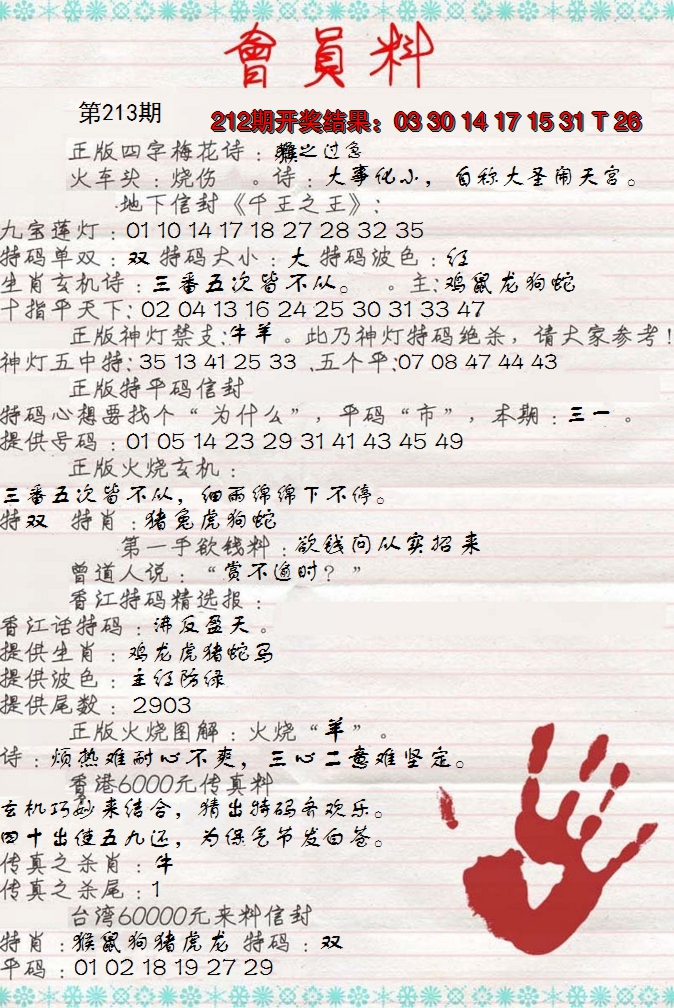 會員料
第213期
212期开奖结果：03 30 14 17 15 31 T 26
正版四字梅花诗：猴之过急
火车头：烧伤 。诗：大事化小，自称大圣闹天宫。
地下信封《千王之王》：
九宝莲灯：01 10 14 17 18 27 28 32 35
特码单双：双 特码大小：大 特码波色：红
生肖玄机诗：三番五次皆不从。 。主：鸡鼠龙狗蛇
十指平天下：02 04 13 16 24 25 30 31 33 47
正版神灯禁支：牛羊。此乃神灯特码绝杀，请大家参考！
神灯五中特：35 13 41 25 33 、五个平：07 08 47 44 43
正版特平码信封
特码心想要找个“为什么”，平码“市”，本期：三一 。
提供号码：01 05 14 23 29 31 41 43 45 49
正版火烧玄机：
三番五次皆不从，细雨绵绵下不停。
特双 特肖：猪兔虎狗蛇
第一手欲钱料：欲钱问从实招来
曾道人说：“赏不逾时？”
香江特码精选报：
香江话特码：沸反盈天。
提供生肖：鸡龙虎猪蛇马
提供波色：主红防绿
提供尾数：2903
正版火烧图解：火烧“羊”。
诗：烦热难耐心不爽，三心二意难坚定。
香港6000元传真料
玄机巧妙来结合，猜出特码齐欢乐。
四十出使五九还，为保气节发白苍。
传真之杀肖：牛
传真之杀尾：1
台湾60000元来料信封
特肖：猴鼠狗猪虎龙 特码：双
平码：01 02 18 19 27 29